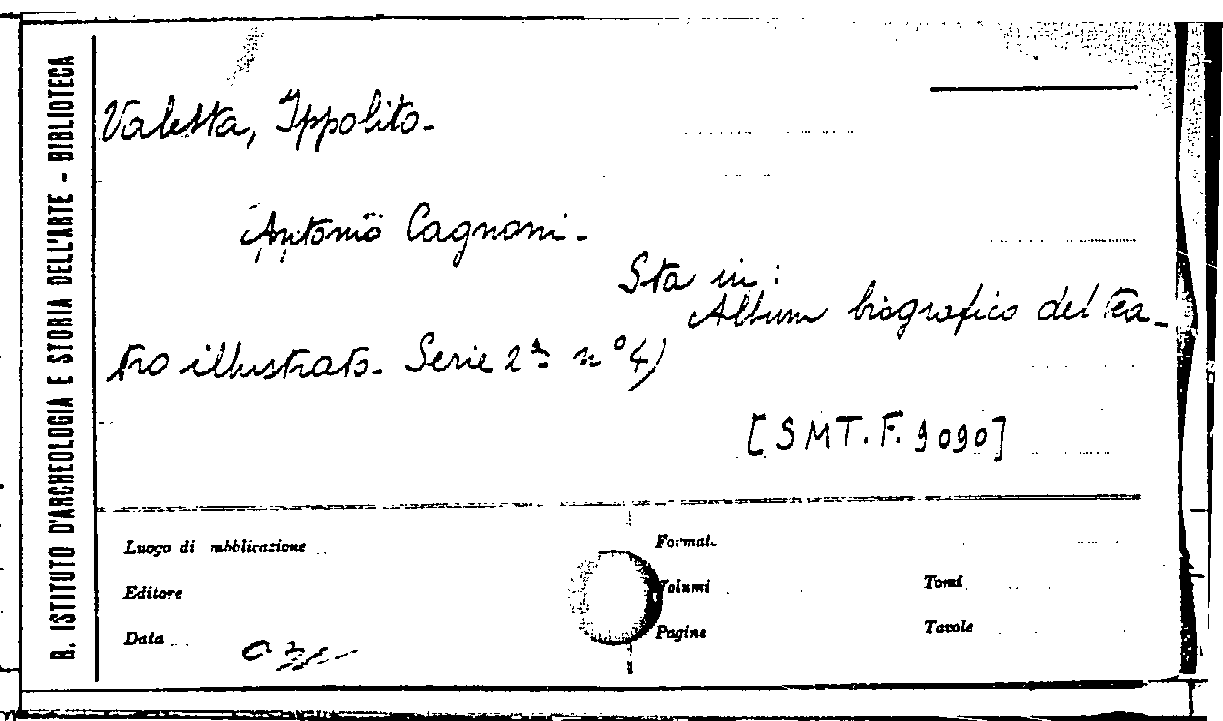 R. ISTITUTO D'ARCHEOLOGIA E STORIA DELL'ARTE - BIBLIOTECA
Valetta, Ippolito.
Antonio Cagnoni.
Sta in:
Album biografico del tea-
tro illustrato. Serie 2ª n° 4)
[SMT. F. 9090]
Luogo di pubblicazione
Format.
Editore
Volumi
Tomi
Data
Pagine
Tavole